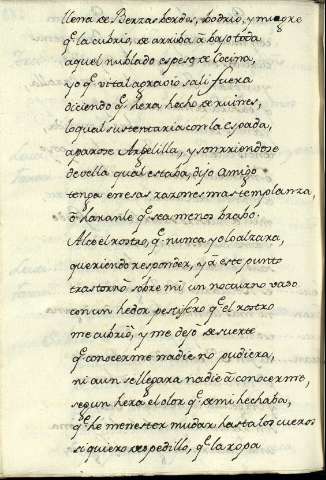 llena de Berzas verdes, podrio, y mugre
q.^e la cubrio, de arriba â bajo toda
aquel nublado espeso de Cocina,
yo q.^e vi tal agravio sali fuera
diciendo q.^e hera hecho de ruines,
lo qual sustentaria con la Espada,
aparose Arbelilla, y sonrriendose
de vella qual estaba, dijo amigo
tenga en esas razones mas templanza,
ô haranle q.^e sea menos brabo.
Alce el rostro, q.^e nunca yo lo alzara,
queriendo responder, y â este punto
trastornò sobre mi un nocturno vaso
con un hedor pestifero q.^e el rostro
me cubriò, y me dejò de suerte
q.^e conocerme nadie no pudiera,
ni aun se llegara nadie â conocerme,
segun hera el olor q.^e de mi hechaba,
q.^e he menester mudar hasta los cueros
si quiero despedillo, q.^e la ropa